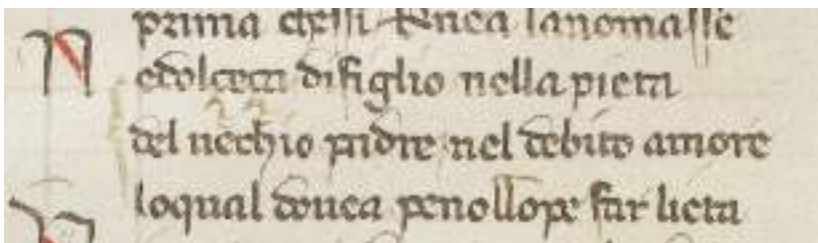 prima chessi Enea lanomasse
N edolceça difiglio nella pieta
del uechio padre nel debito amore
loqual douea penollope far lieta